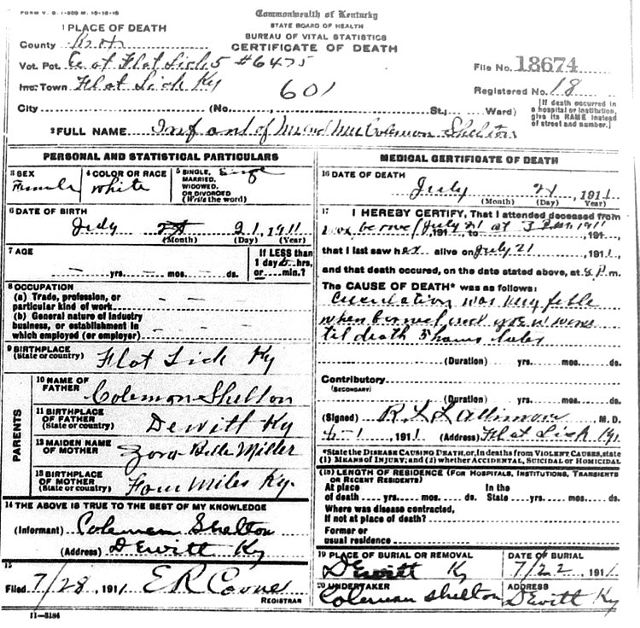 FORM V. S. 1-
Commonwealth of Kentucky
STATE BOARD OF HEALTH
BUREAU OF VITAL STATISTICS
CERTIFICATE OF DEATH
1 PLACE OF DEATH
County
Vot. Pct. Flat Lick 5 #6475
Inc. Town Flat Lick Ky 601
File No. 18674
Registered No. 18
City (No. St.; Ward)
[If death occurred in a hospital or institution, give its NAME instead of street and number.]
2 FULL NAME Infant of Mr and Mrs Coleman Shelton
PERSONAL AND STATISTICAL PARTICULARS
3 SEX Female
4 COLOR OR RACE white
5 SINGLE, MARRIED, WIDOWED, OR DIVORCED (Write the word)
6 DATE OF BIRTH
July 21, 1911
(Month) (Day) (Year)
7 AGE
yrs. mos. ds.
If LESS than 1 day hrs. or min.?
8 OCCUPATION
(a) Trade, profession, or particular kind of work
(b) General nature of industry business, or establishment in which employed (or employer)
9 BIRTHPLACE (State or country) Flat Lick Ky
PARENTS
10 NAME OF FATHER Coleman Shelton
11 BIRTHPLACE OF FATHER (State or country) Dewitt Ky
12 MAIDEN NAME OF MOTHER Zora Belle Miller
13 BIRTHPLACE OF MOTHER (State or country) Four Miles Ky.
14 THE ABOVE IS TRUE TO THE BEST OF MY KNOWLEDGE
(Informant) Coleman Shelton
(Address) Dewitt Ky
15
Filed 7/28, 1911 E R
REGISTRAR
11-3184
MEDICAL CERTIFICATE OF DEATH
16 DATE OF DEATH
July 21, 1911
(Month) (Day) (Year)
17 I HEREBY CERTIFY, That I attended deceased from
July 21 at 1911, 191 to 191
that I last saw her alive on July 21 1911,
and that death occured, on the date stated above, at 8 P.m.
The CAUSE OF DEATH* was as follows:
was very feble
when
til death 5 hours
(Duration) yrs. mos. ds.
Contributory
(SECONDARY)
(Duration) yrs. mos. ds.
(Signed) M. D.
1911 (Address) Flat Lick Ky.
*State the DISEASE CAUSING DEATH, or, in deaths from VIOLENT CAUSES, state (1) MEANS OF INJURY; and (2) whether ACCIDENTAL, SUICIDAL or HOMICIDAL
18 LENGTH OF RESIDENCE (FOR HOSPITALS, INSTITUTIONS, TRANSIENTS OR RECENT RESIDENTS)
At place of death yrs. mos. ds.
In the State yrs. mos. ds.
Where was disease contracted,
If not at place of death?
Former or usual residence
19 PLACE OF BURIAL OR REMOVAL
Dewitt Ky
DATE OF BURIAL
7/22, 1911
20 UNDERTAKER
Coleman Shelton
ADDRESS
Dewitt Ky